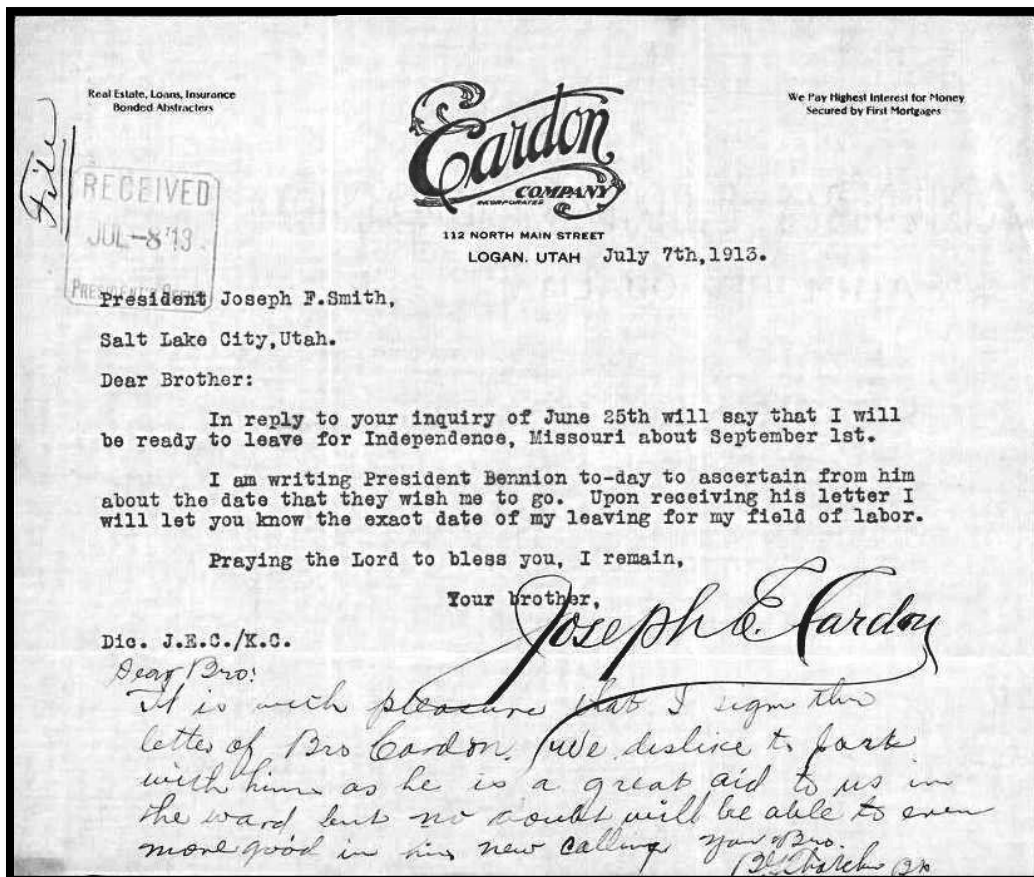 Real Estate, Loans, Insurance
Bonded Abstracters
Cardon
COMPANY
INCORPORATED
We Pay Highest Interest for Money
Secured by First Mortgages
File
RECEIVED
JUL-8 '13
PRESIDENT'S OFFICE
112 NORTH MAIN STREET
LOGAN, UTAH July 7th,1913.
President Joseph F.Smith,
Salt Lake City,Utah.
Dear Brother:
In reply to your inquiry of June 25th will say that I will
be ready to leave for Independence, Missouri about September 1st.
I am writing President Bennion to-day to ascertain from him
about the date that they wish me to go. Upon receiving his letter I
will let you know the exact date of my leaving for my field of labor.
Praying the Lord to bless you, I remain,
Your brother,
Joseph E. Cardon
Dic. J.E.C./K.C.
Dear Bro:
It is with pleasure that I sign this
letter of Bro Cardon. We dislike to part
with him as he is a great aid to us in
the ward but no doubt will be able to even
more good in his new calling Your Bro.